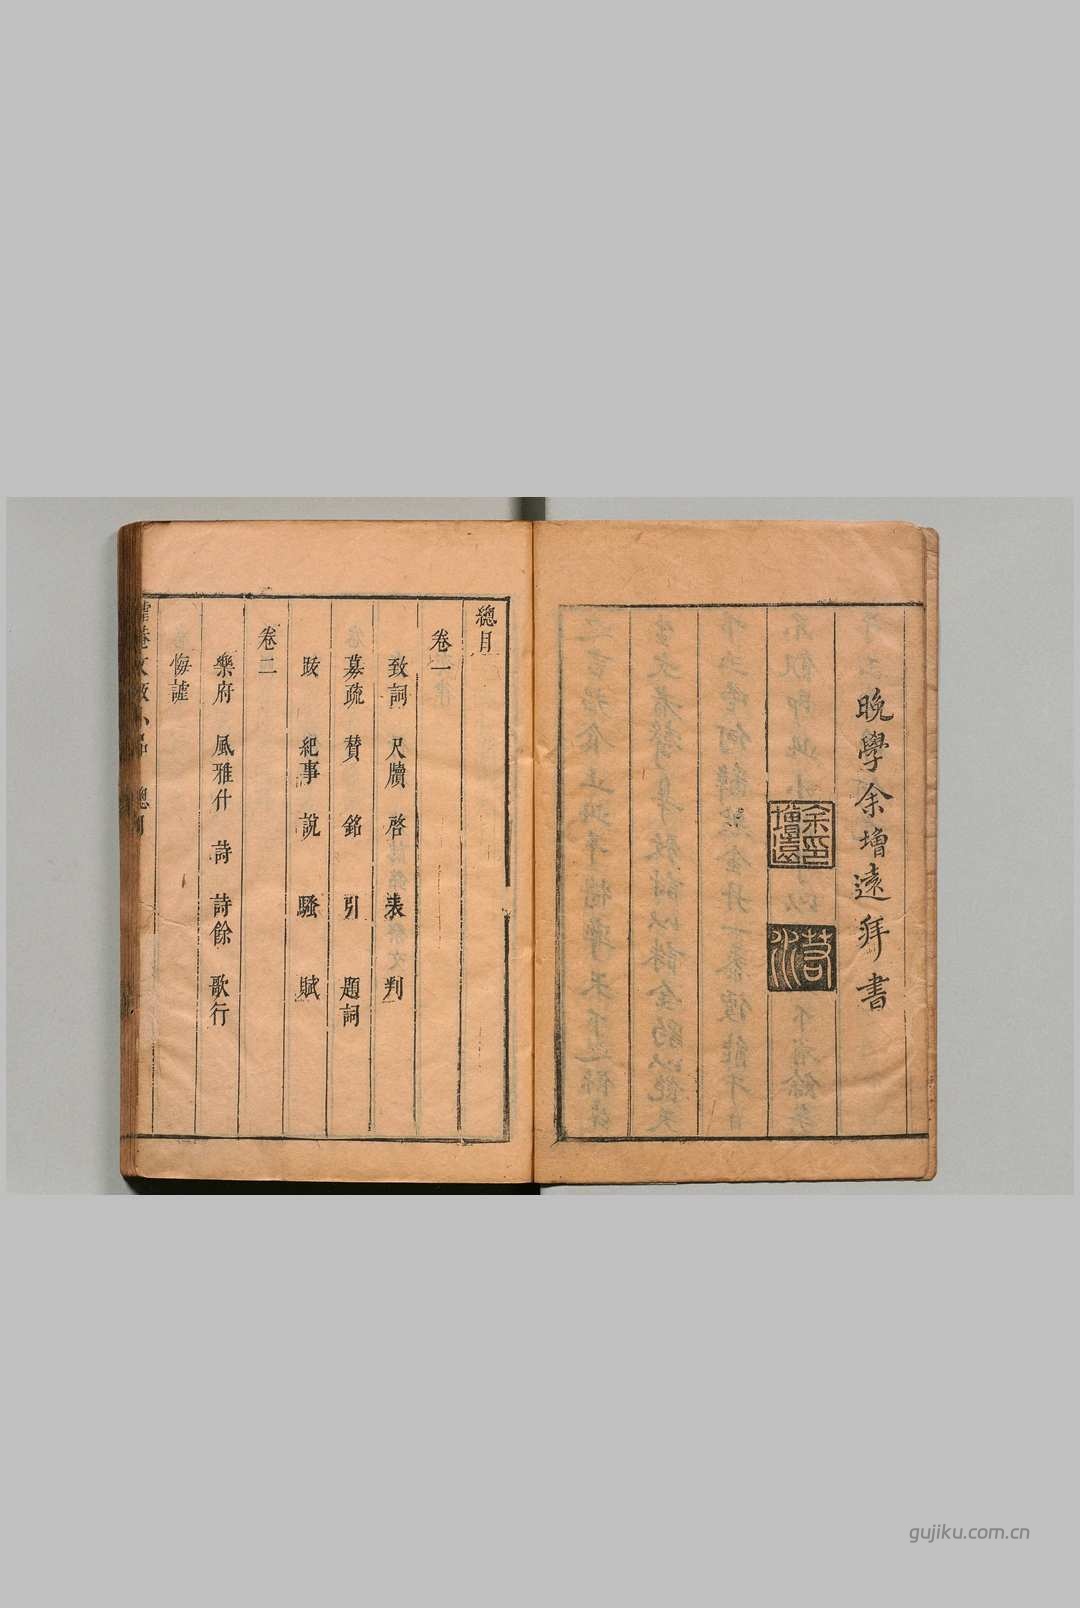 晚學余增遠拜書
余印增遠
若水
總目
卷一
致詞 尺牘 啓 表 判
募疏 贊 銘 引 題詞
跋 紀事 說 騷 賦
卷二
樂府 風雅什 詩 詩餘 歌行
悔謔
gujiku.com.cn